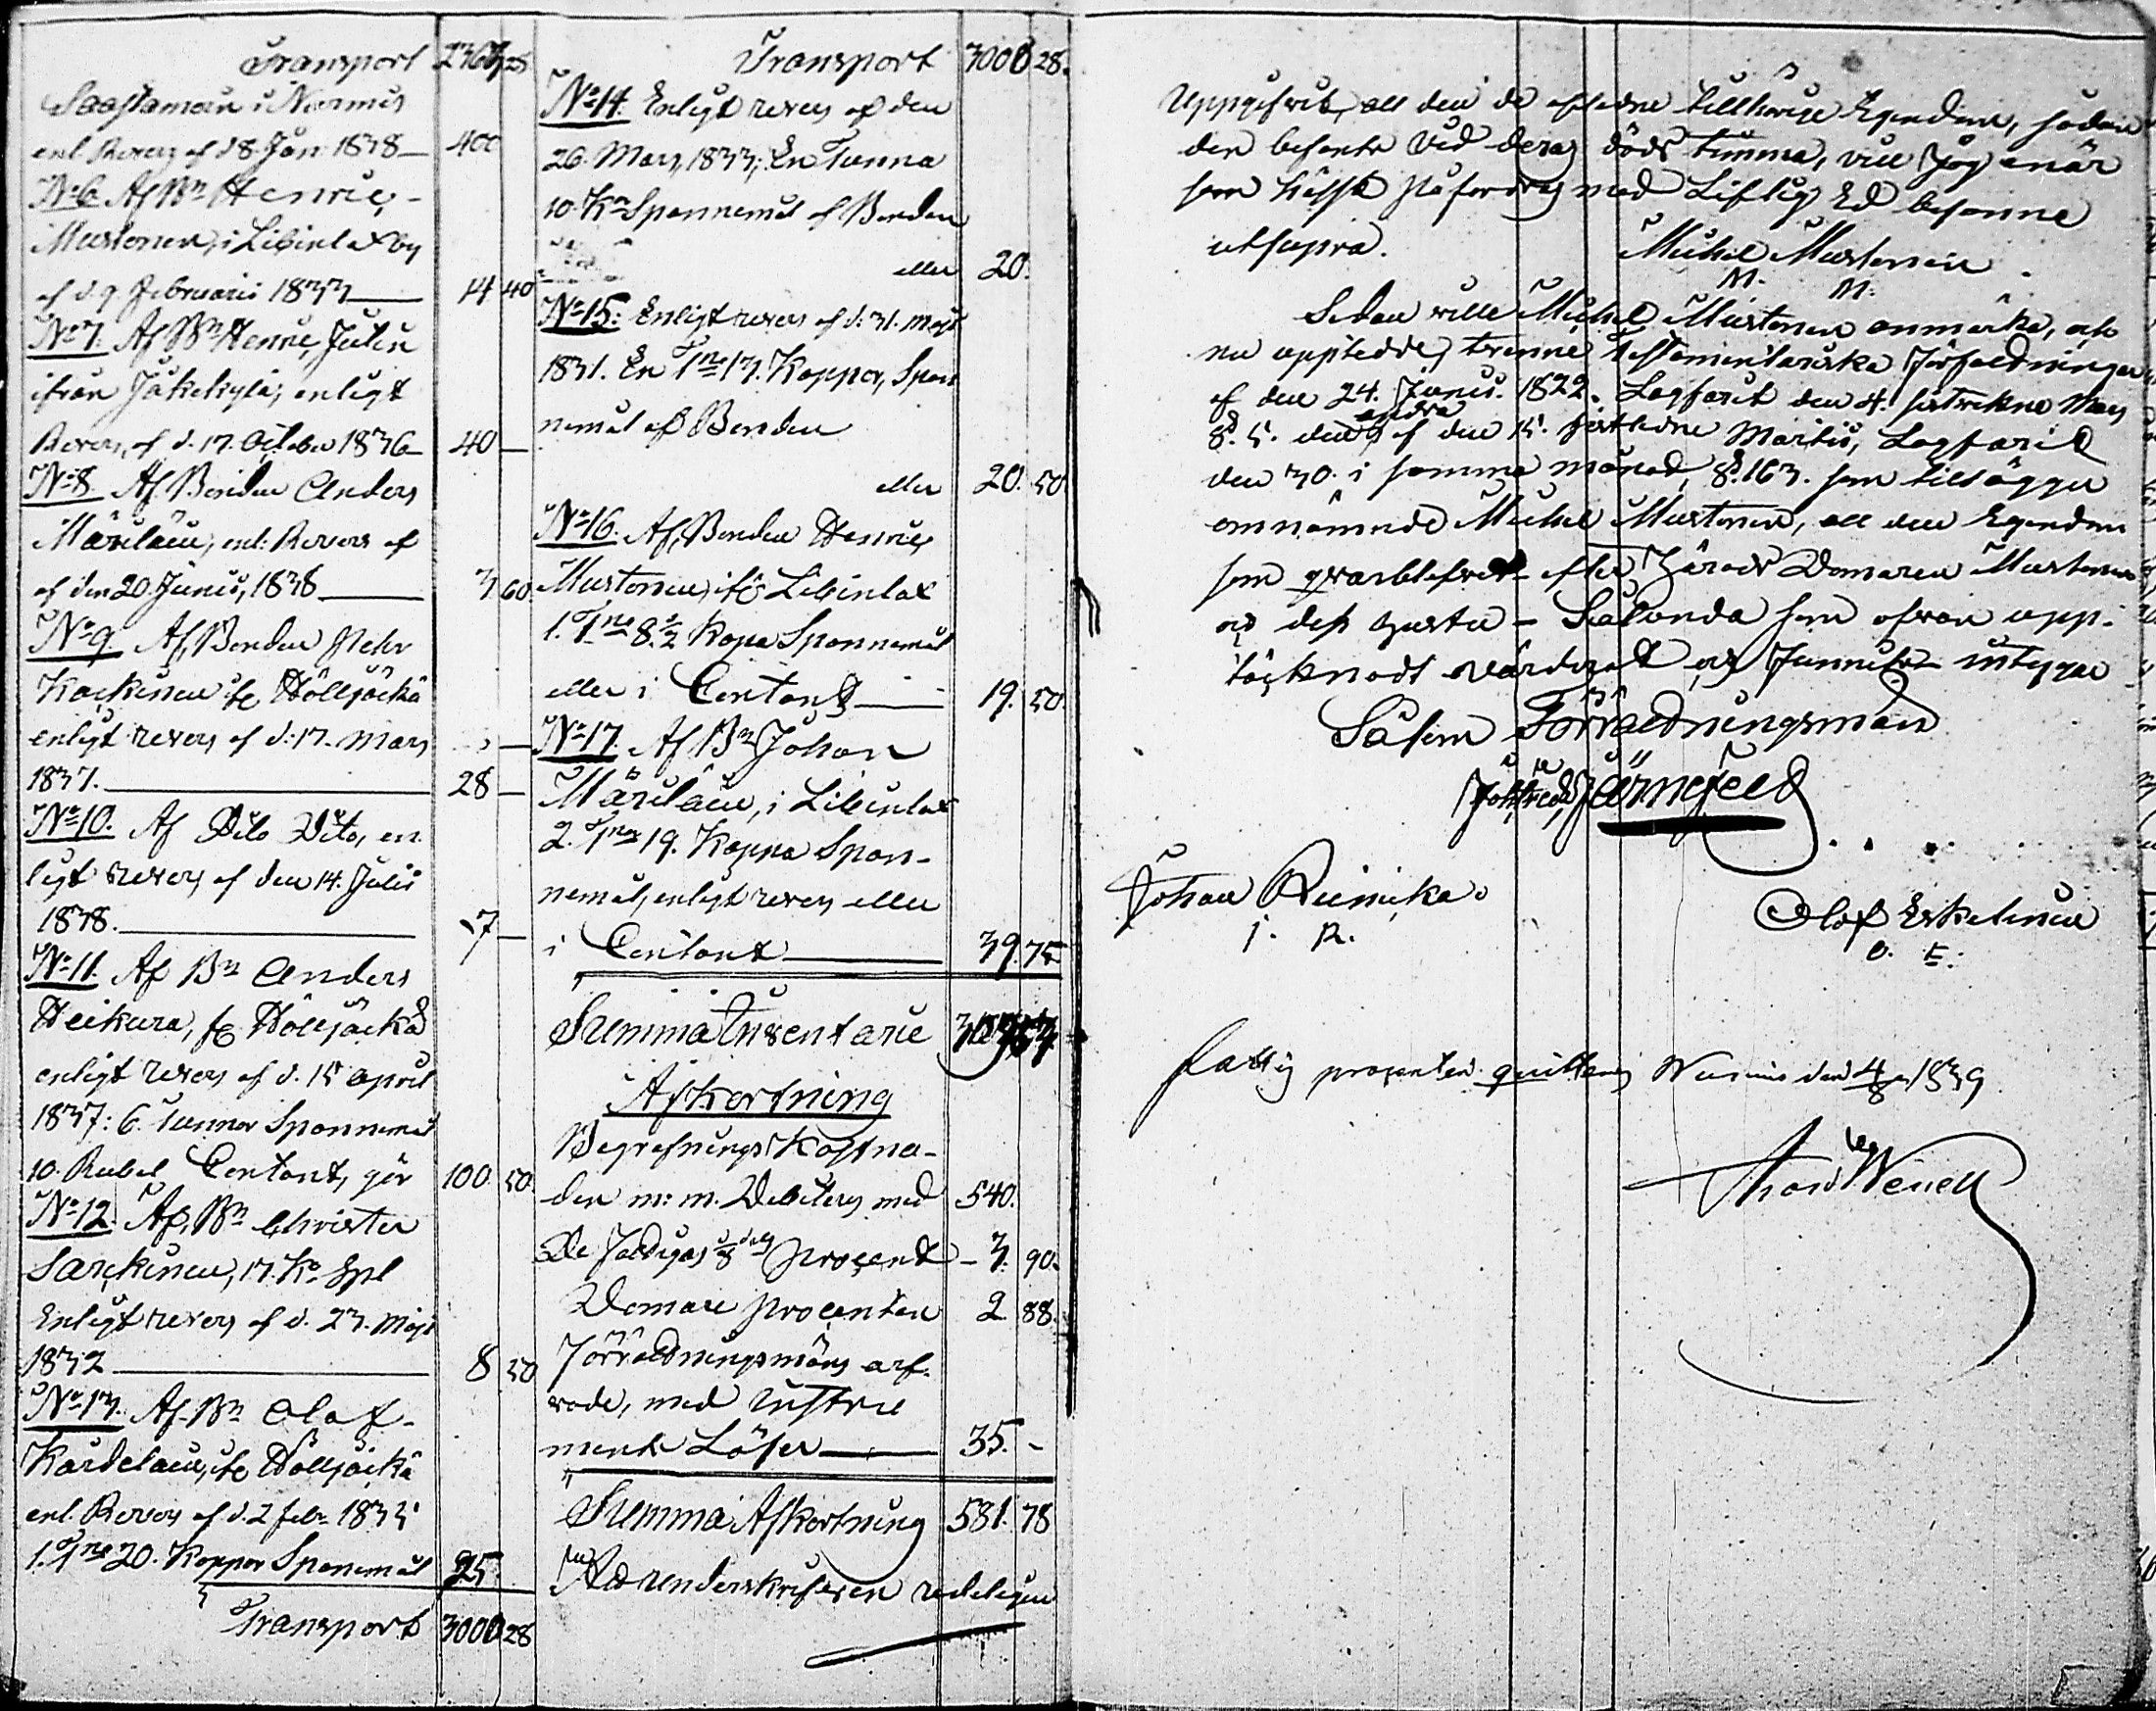 Transport 2367 28
i Nurmis
enl. Revers af d 8. Jan: 1838 — 400
No 6. Af Bn Henric
Mustonen, i Libinlax by
af d. 9. Februarii 1833 — 14 40
No 7. Af Bn Henric Julin
ifrån Jokikylä, enligt
Revers, af d. 17. October 1836 — 40 —
No 8. Af Bonden Anders
Märiläin, enl: Revers af
af den 20. Junii, 1838 — 3 60
No 9. Af Bonden Pehr
Kockinen ifr Höljäckä
enligt revers af d: 17. Mars
1837. — 28 —
No 10. Af Dito Dito, en
ligt revers af den 14. Julii
1838. — 7 —
No 11. Af Bn Anders
Heikura, fr Höljäckä
enligt revers af d. 15 April
1837: 6. Tunnor Spannemål
10. Rubel Contant, gör 100. 50.
No 12. Af Bn Christer
Särckinen, 17. Kr Spl
Enligt revers af d. 23. Maji
1832 — 8 50
No 13. Af Bn Olof
Kärdelain, ifr Höljäckä
enl. Revers af d. 2 febr. 1835
1. Tne 20. Kappor Spanemål 25.
Transport 3000 28
Transport 3000 28.
No 14. Enligt revers af den
26. Mars, 1833; En Tunna
10. Kr Spannemål af Bonden
eller 20.
No 15: Enligt revers af d: 31. Maji
1831. En Tne 17. Kappor, Span
nemål af Bonden
eller 20. 50
No 16. Af Bonden Henric
Mustonen, ifr Libinlax
1. Tne 8. ½ Kapa Spannemål
eller i Contant — 19. 50.
No 17. Af Bn Johan
Märiläin, i Libinlax
2. Tnr 19. Kappa Span-
nemål, enligt revers eller
i Contant — 39. 75
Summa Inventarie
Afkortning
Begrafnings Kostna-
den m: m. Debiteras med 540.
De Fattigas ⅛ dels procent — 3. 90.
Domare procenten 2 88.
Förrättningsmäns arf-
vode, med
Lösen — 35. -
Summa Afkortning 581. 78
At underskrifven redeligen
Uppgifvit, all den de aflidne tillhörige Egendom, sådan
den befants vid deras döds timma, vill Jag enär
som hälst påfordras med Liflig Ed besanna
utsupra. Michel Mustonen
M. M.
Sedan ville Michel Mustonen anmärka, och
nu uppviste, trenne Testamentariska Författningar
af den 24. Junii. 1822. Lagfarit den 4. Mars
§. 5. den andra af den 15. Martii, Lagfarit
den 30. i samma månad, §. 163. som tillägger
omnämnde Michel Mustonen, all den Egendom
som qvarblefvit efter Härads Domaren Mustonen
och dess hustru — Sålunda som ofvan upp-
täcknadt värderadt och intygar
Såsom Förrättningsmän
Järnefelt
Johan Reinicka
J. R.
Olof Eskelinen
O. E.
fattig procenten quitteras Nurmis den 4/8 1839
Wenell